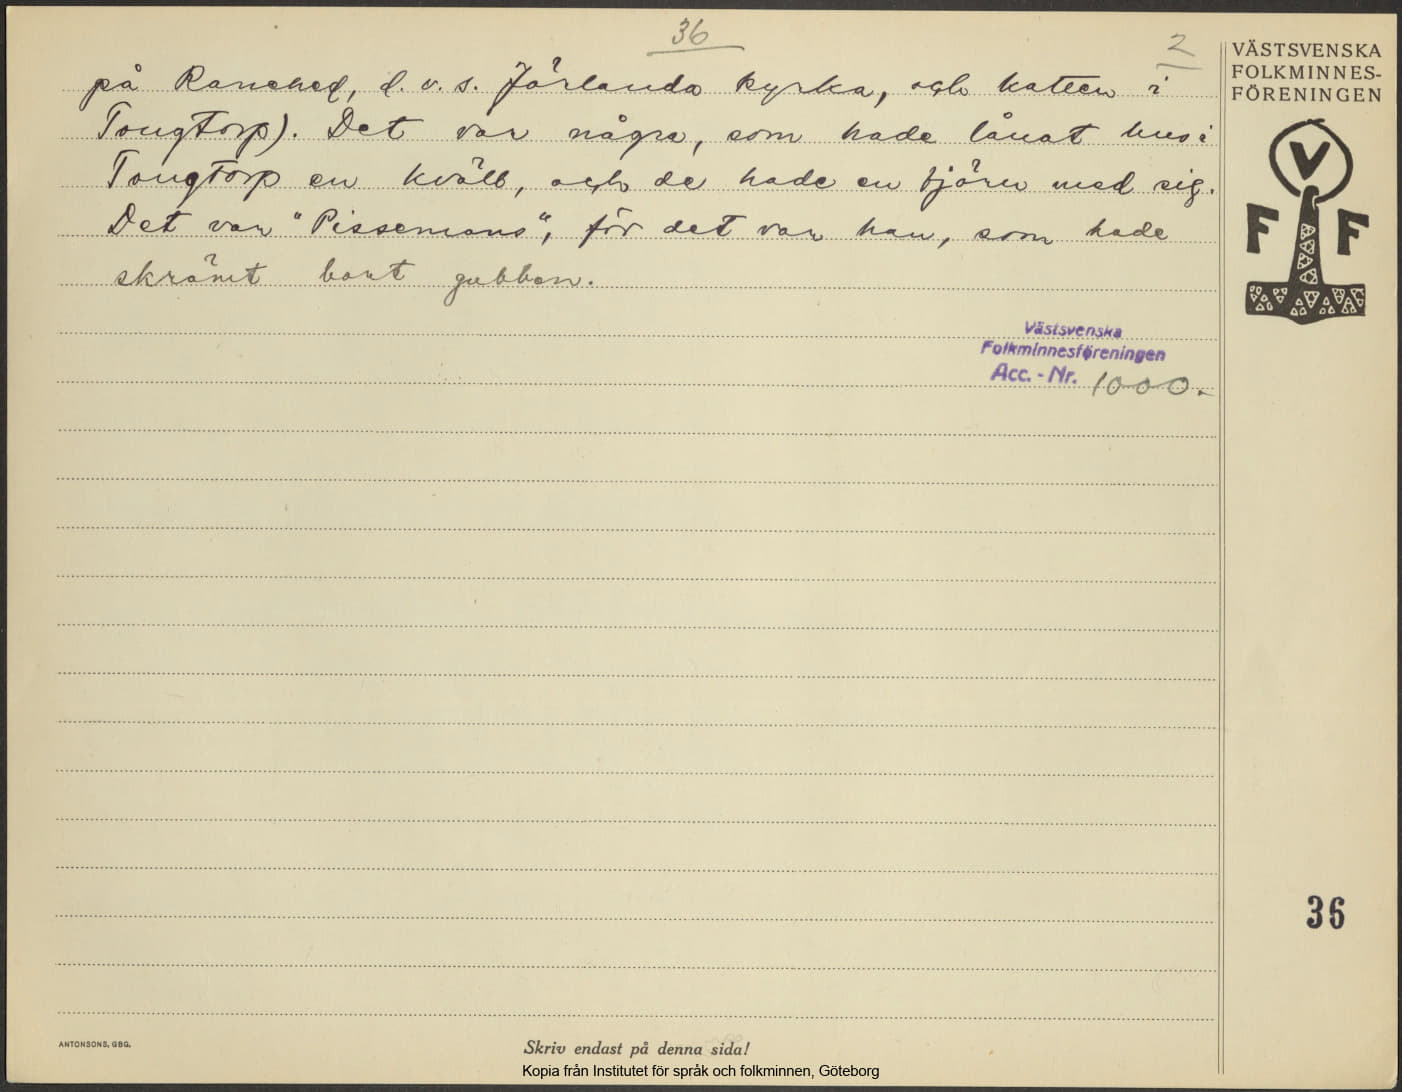 36
2
på Ranehed, d.v.s. Jörlanda kyrka, och katten i
Tongtorp). Det var några, som hade lånat hus i
Tongtorp en kväll, och de hade en björn med sig.
Det var "Pissemans", för det var han, som hade
skrämt bort gubben.
VÄSTSVENSKA
FOLKMINNES-
FÖRENINGEN
V
F F
Västsvenska
Folkminnesföreningen
Acc. - Nr. 1000.
36
ANTONSONS, GBG.
Skriv endast på denna sida!
Kopia från Institutet för språk och folkminnen, Göteborg